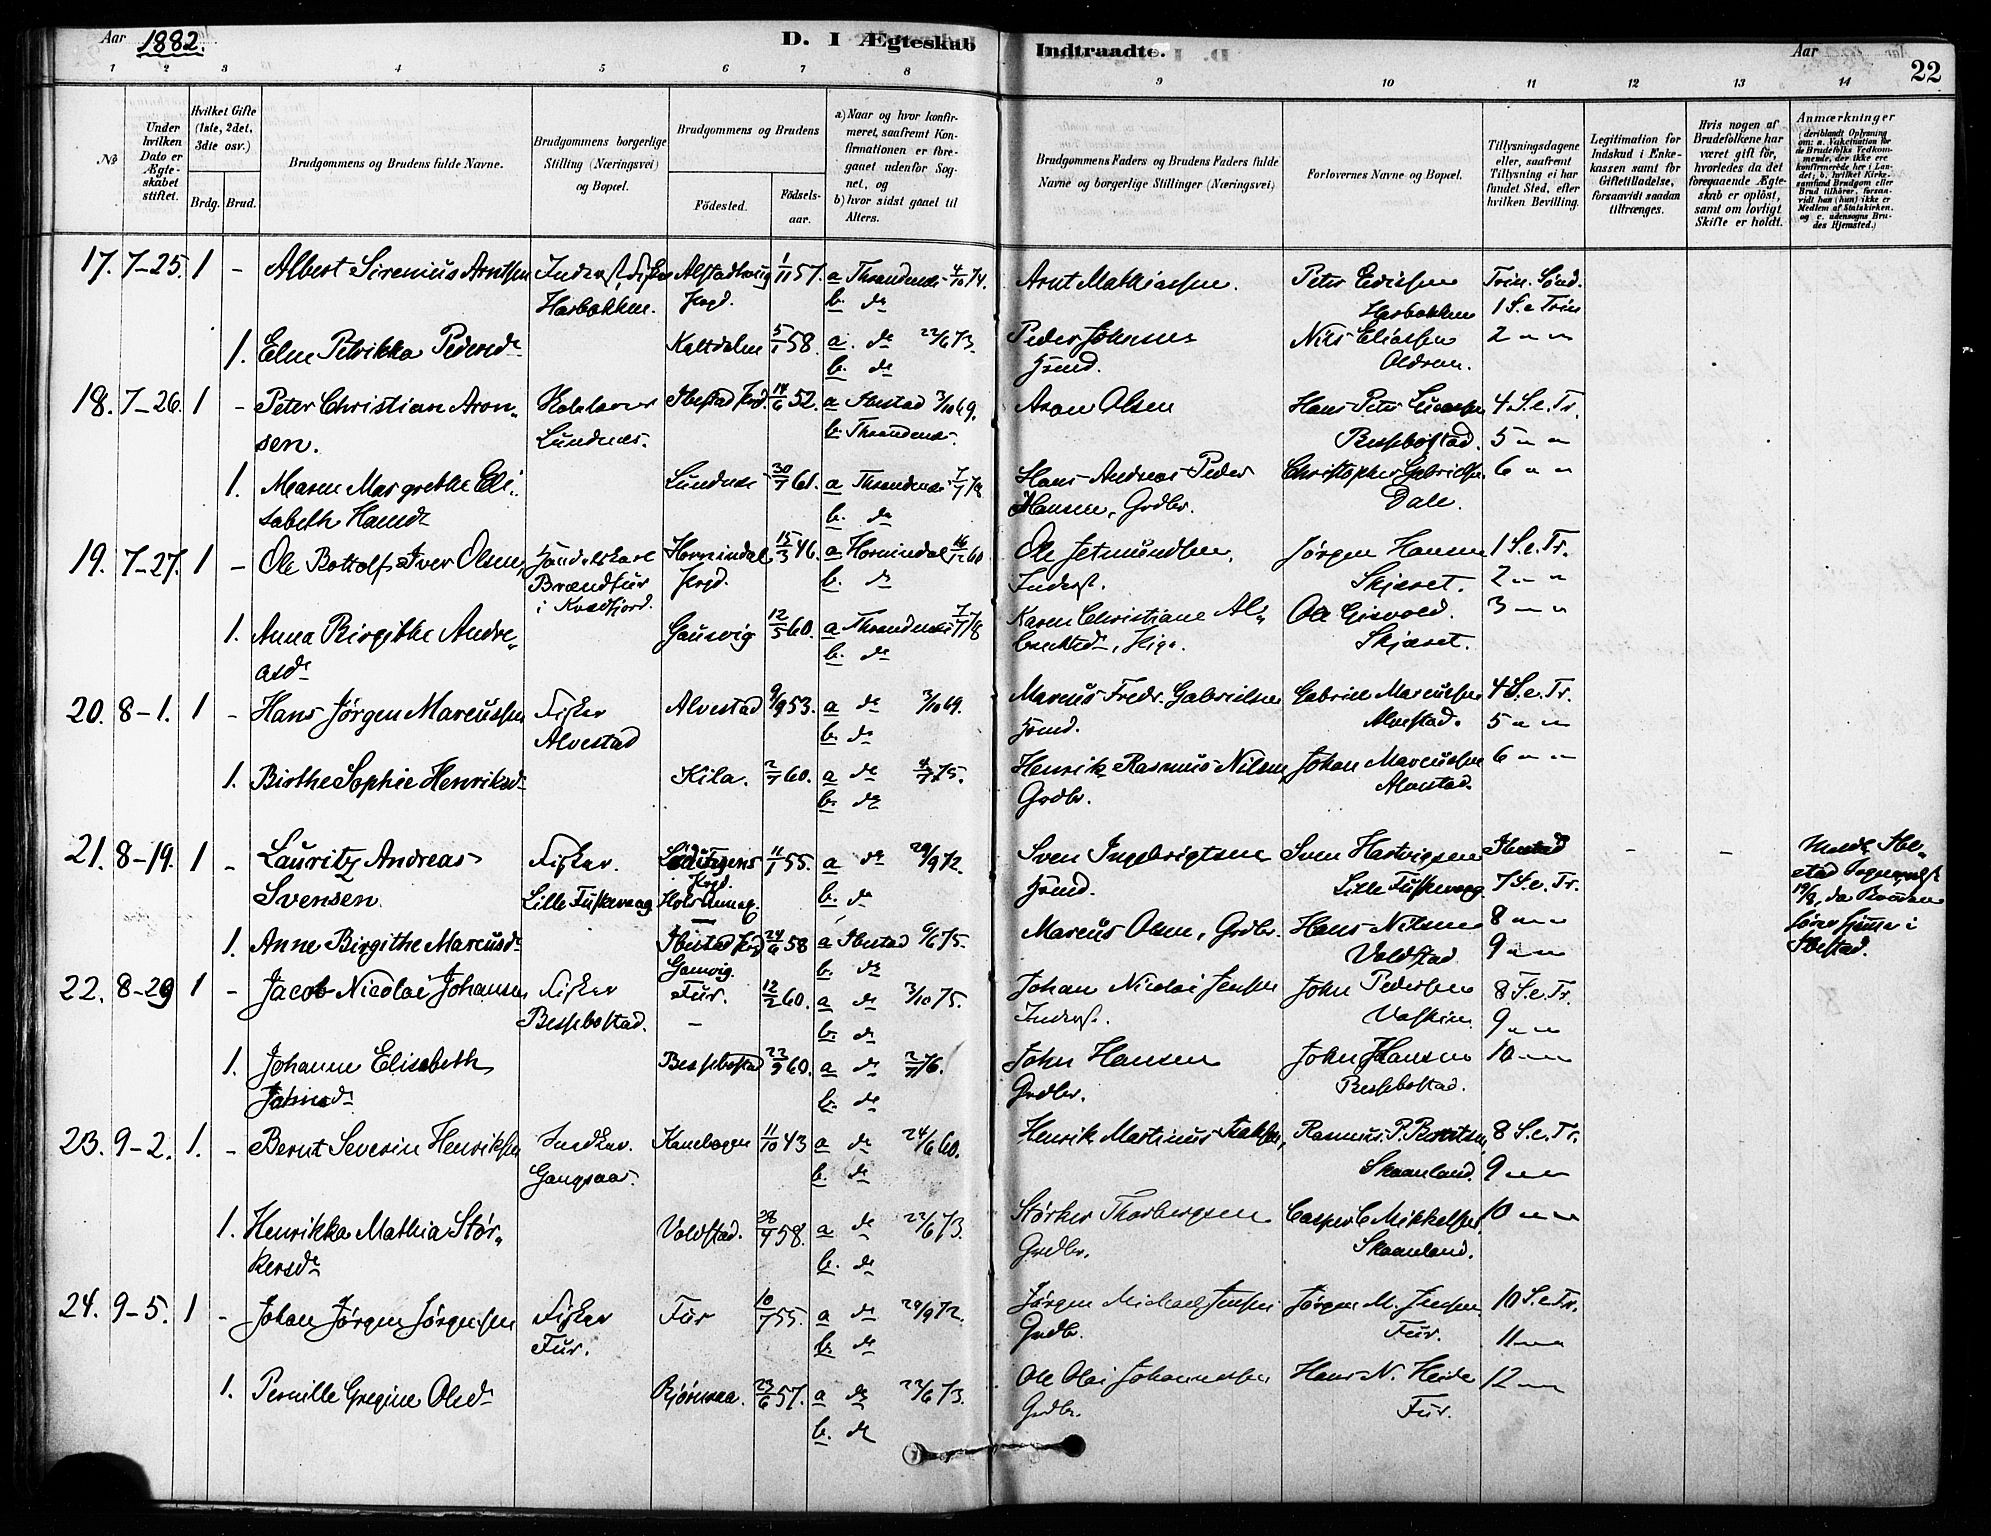 Aar 1882.
D. I Ægteskab Indtraadte.
Aar
22
1 2 3 4 5 6 7 8 9 10 11 12 13 14
No
Under hvilken Dato er Ægteskabet stiftet.
Hvilket Gifte (1ste, 2det, 3die osv.)
Brdg. Brud.
Brudgommens og Brudens fulde Navne.
Brudgommens borgerlige Stilling (Næringsvei) og Bopæl.
Brudgommens og Brudens
Fødested.
Fødselsaar.
a) Naar og hvor konfirmeret, saafremt Konfirmationen er foregaaet udenfor Sognet, og
b) hvor sidst gaaet til Alters.
Brudgommens Faders og Brudens Faders fulde Navne og borgerlige Stillinger (Næringsvei)
Forlovernes Navne og Bopæl.
Tillysningsdagene eller, saafremt Tillysning ei har fundet Sted, efter hvilken Bevilling.
Legitimation for Indskud i Enkekassen samt for Giftetilladelse, forsaavidt saadan tiltrænges.
Hvis nogen af Brudefolkene har været gift før, hvorledes da det foregaaende Ægteskab er opløst, samt om lovligt Skifte er holdt.
Anmærkninger
(deriblandt Oplysning om: a. Vakcination for de Brudefolks Vedkommende, der ikke ere konfirmerede her i Landet; b. hvilket Kirkesamfund Brudgom eller Brud tilhører, forsaavidt han (hun) ikke er Medlem af Statskirken, og c. udensogns Brudes Hjemsted.)
17. 7-25. 1 - Albert Sirenius Arntsen Inderst, Fisker Alstadhaug 1/11 57. a Throndenes 4/10 74. Arnt Mathiassen. Peter Edissen Trin. Sønd.
Harbakken. Prgd. b. do Harbakken 1 S. e Trin
1. Elen Petrikka Pedersdr Kaltdalen 5/1 58. a. do 22/6 73. Peder Johnsen Nils Eliassen 2 " "
b. do Gmd. Oldran.
18. 7-26. 1 - Peter Christian Aron- Ibestad Prgd. 14/6 52. a Ibestad 3/10 69. Aron Olsen Hans Peter Lucassen 4 S. e. Tr.
sen. Lundnes. b. Throndenes. Bessebostad. 5 " "
1. Maren Margrethe Eli- Lundnes 30/7 61. a Throndenes 7/7 78 Hans Andreas Peder Christopher Gabrielsen 6 " "
sabeth Hansdr b. do Hansen, Grdbr. Dale.
19. 7-27. 1 - Ole Bottolf Iver Olsen, Handelskarl Hornindal 15/3 46. a Hornindal 60. Ole Jetmundsen, Jørgen Hansen 1 S. e. Tr.
Brændfur Prgd. b. do Inderst. Skjæret. 2 " "
i Kvædfjord.
1. Anna Birgithe Andre- Gausvig 12/5 60. a Throndenes 7/7 78 Karen Christiane Al- Ole Gisvold 3 " "
asdr b. do Pige. Skjæret.
20. 8-1. 1 - Hans Jørgen Marcussen Fisker Alvestad 9/9 53. a do 3/10 69. Marcus Fredr. Gabrielsen Gabriel Marcussen 4 S. e. Tr.
Alvestad b. do Gmd. Alvestad. 5 " "
1. Birthe Sophie Henriksdr Kila. 2/7 60. a do 4/7 75. Henrik Rasmus Nilsen, Johan Marcussen 6 " "
b. do Grdbr. Alvestad.
21. 8-19. 1 - Lauritz Andreas Fisker. Lødingens 11/1 55. a do 29/9 72. Sven Ingebrigtsen Sven Hartvigsen Ibestad - -
Svensen Lille Fuskevaag Prgd. b. do Gmd. Lille Fuskevaag 7 S. e. Tr.
1. Anne Birgithe Marcusdr Ibestad Prgd 24/6 58 a Ibestad 6/6 75. Marcus Olsen, Grdbr. Hans Nilsen 8 " "
Gamvig. b. do Voldstad 9 " "
19/8, da Bruden
Ibestad.
22. 8-29 1 - Jacob Nicolai Johansen Fisker Fur. 12/2 60. a do 3/10 75. Johan Nicolai Jensen John Pedersen 8 S. e. Tr.
Bessebostad. - b. do Inderst. Vaskinn 9 " "
1. Johanne Elisabeth Bessebostad 22/9 60. a do 2/7 76. John Hansen John Hansen 10 " "
Johnsdr b. do Grdbr. Bessebostad.
23. 9-2. 1. - Bernt Severin Henriksen Kanebogen 11/10 43 a do 24/6 60. Henrik Martinus Rasmus P. Berntsen, 8 S. e. Tr.
Gangsaas. b. do Skaanland. 9 " "
1. Henrikka Mathia Stør- Voldstad. 28/9 58. a do 22/6 73. Størker Thorbergsen Casper C Mikkelsen, 10 " "
kersdr b. do Grdbr. Skaanland.
24. 9-5. 1 - Johan Jørgen Jørgensen Fisker Fur 10/7 55. a do 29/9 72. Jørgen Michael Jensen Jørgen M. Jensen 10 S. e Tr.
Fur. b. do Grdbr. Fur. 11 " "
1. Pernille Gregine Olsdr Bjørnraa. 23/6 57. a do 22/6 73. Ole Olai Johannessen Hans N. Heide 12 " "
b. do Grdbr. Fur.